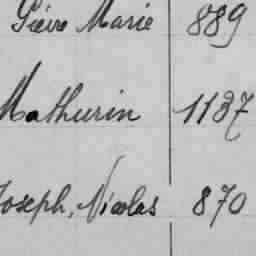 Pierre Marie 889
Mathurin 1137
Joseph, Nicolas 870